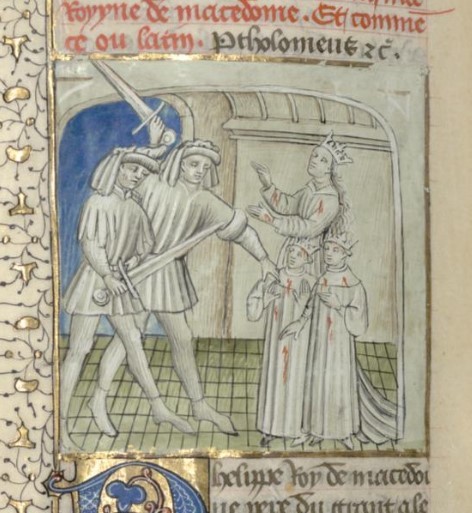 Royne de macedome. Et comme
ce ou latin. Ptholomeus ⁊c̃.
Phelippe Roy de macedoi
ne pere du grant ale